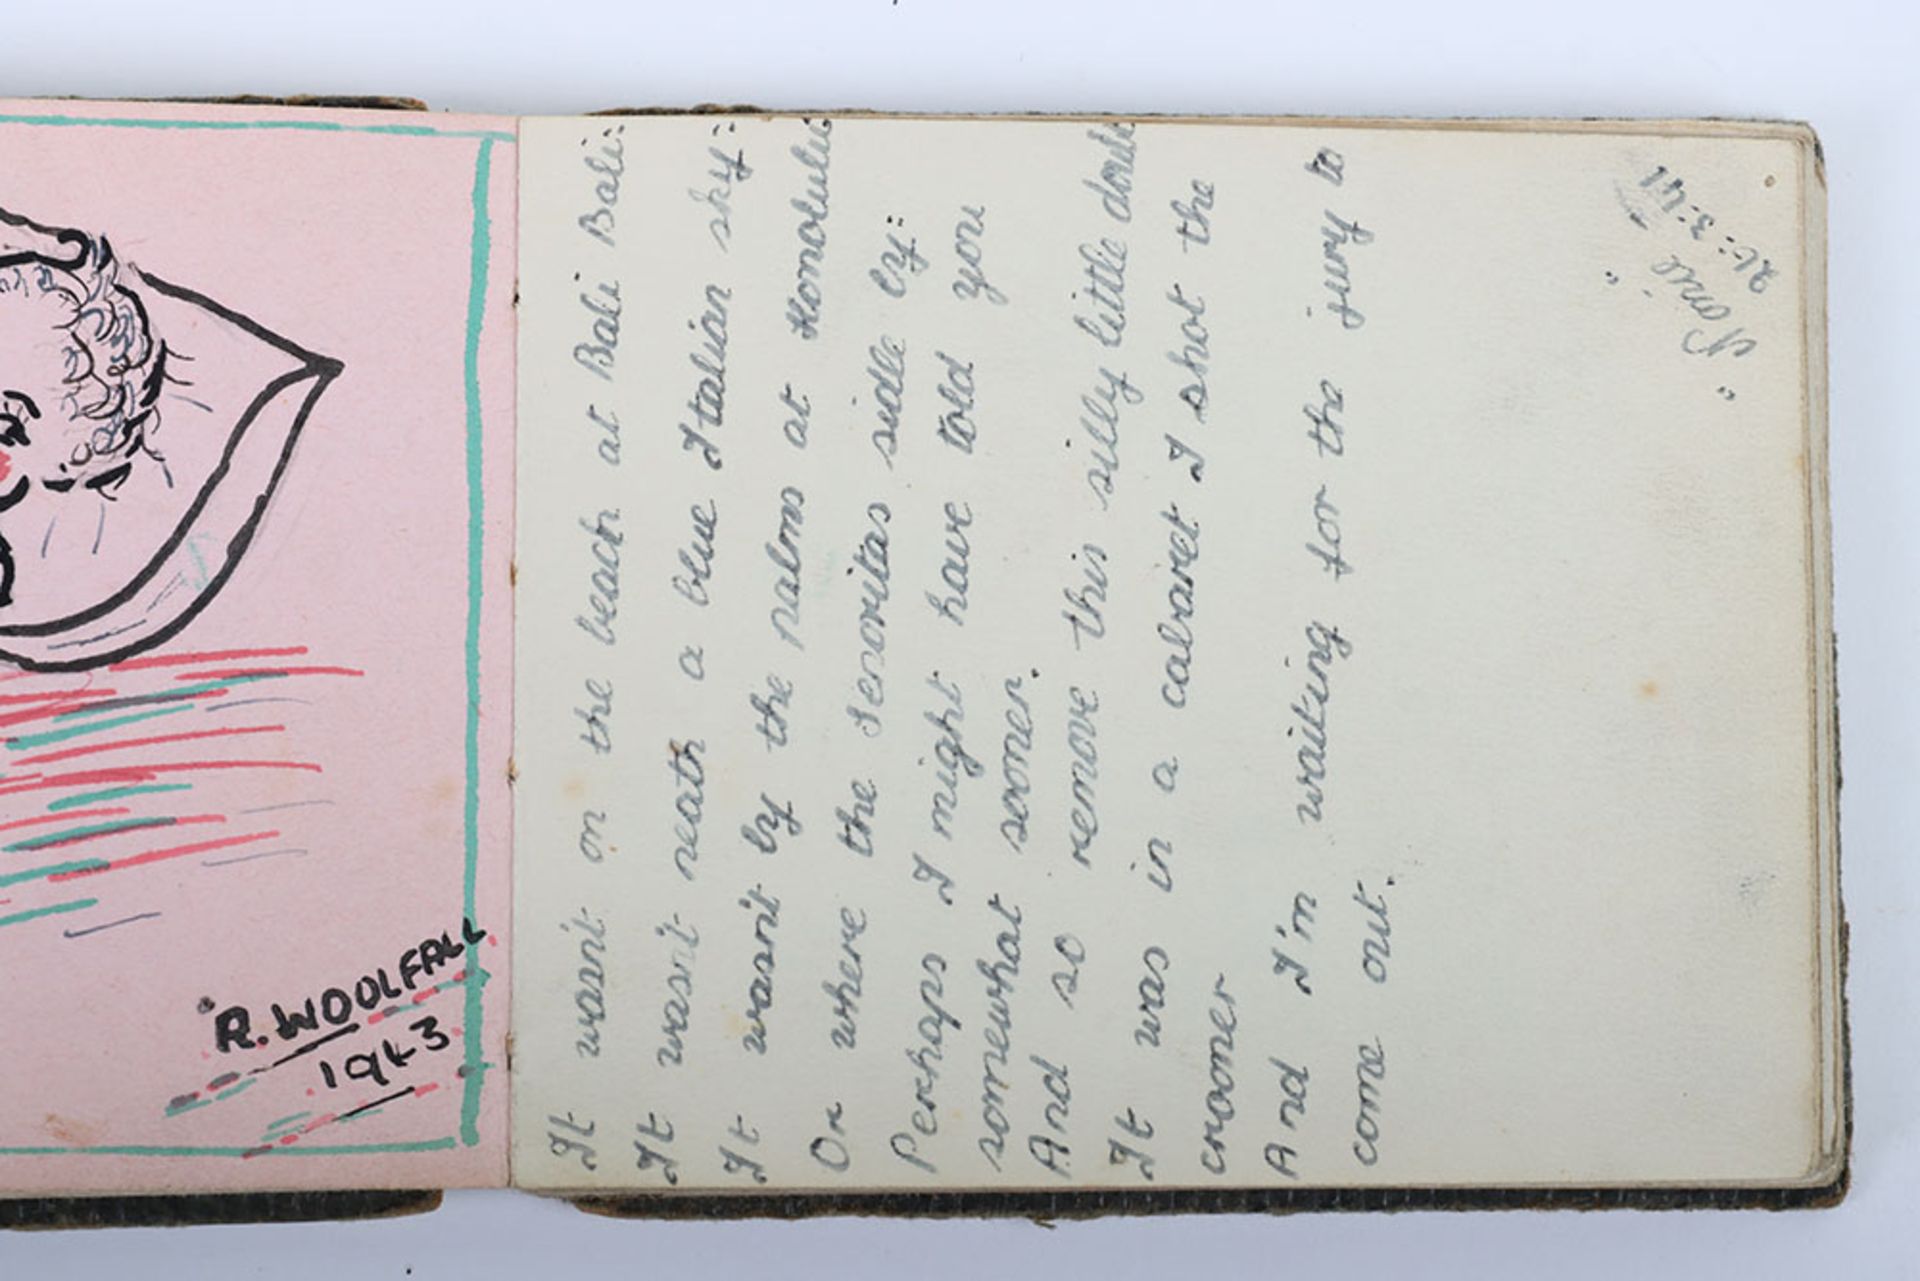 R. WOOLFALL
1943
It wasn't on the beach at Bali Bali:
It wasn't neath a blue Italian sky:
It wasn't by the palms at Honolulu
Or where the Senoritas sidle by:
Perhaps I might have told you
somewhat sooner.
And so remove this silly little doubt
It was in a cabaret I shot the
crooner
And I'm waiting for the jury to
come out.